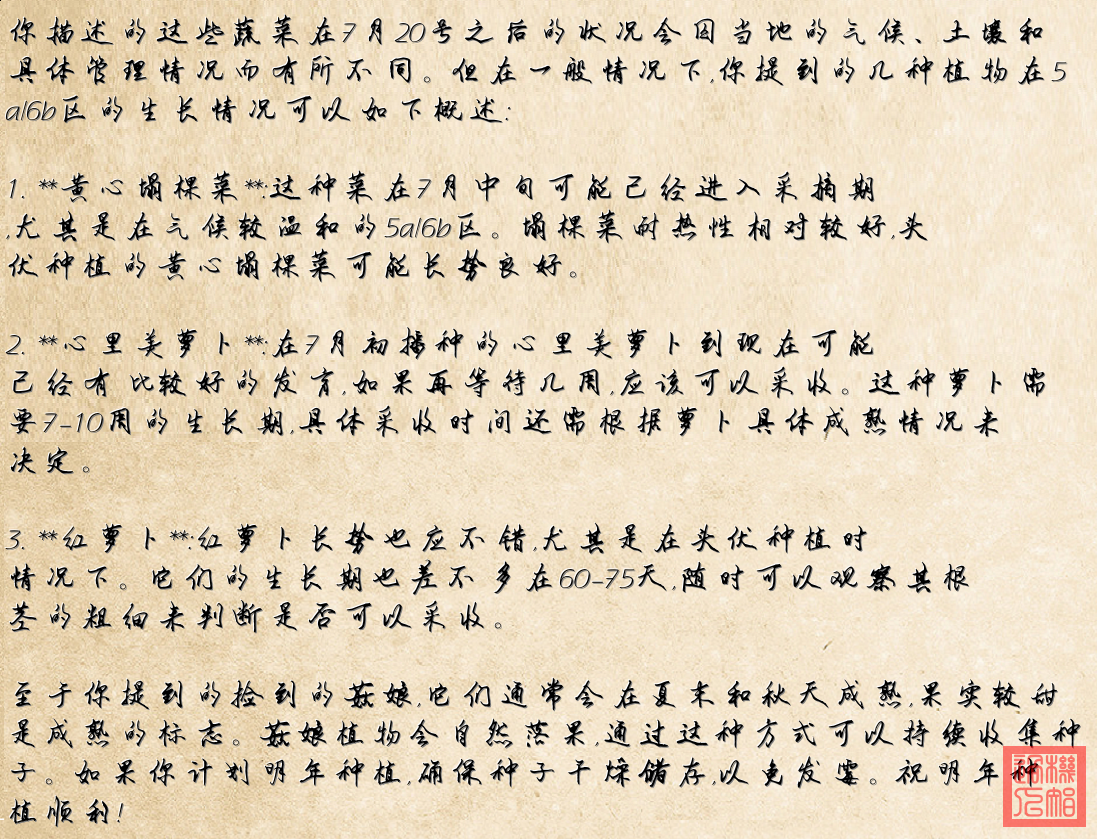 你描述的这些蔬菜在7月20号之后的状况会因当地的气候、土壤和
具体管理情况而有所不同。但在一般情况下,你提到的几种植物在5
a/6b区的生长情况可以如下概述:
1. **黄心塌棵菜**:这种菜在7月中旬可能已经进入采摘期
,尤其是在气候较温和的5a/6b区。塌棵菜耐热性相对较好,头
伏种植的黄心塌棵菜可能长势良好。
2. **心里美萝卜**:在7月初播种的心里美萝卜到现在可能
已经有比较好的发育,如果再等待几周,应该可以采收。这种萝卜需
要7-10周的生长期,具体采收时间还需根据萝卜具体成熟情况来
决定。
3. **红萝卜**:红萝卜长势也应不错,尤其是在头伏种植时
情况下。它们的生长期也差不多在60-75天,随时可以观察其根
茎的粗细来判断是否可以采收。
至于你提到的捡到的菇娘,它们通常会在夏末和秋天成熟,果实较甜
是成熟的标志。菇娘植物会自然落果,通过这种方式可以持续收集种
子。如果你计划明年种植,确保种子干燥储存,以免发霉。祝明年种
植顺利!